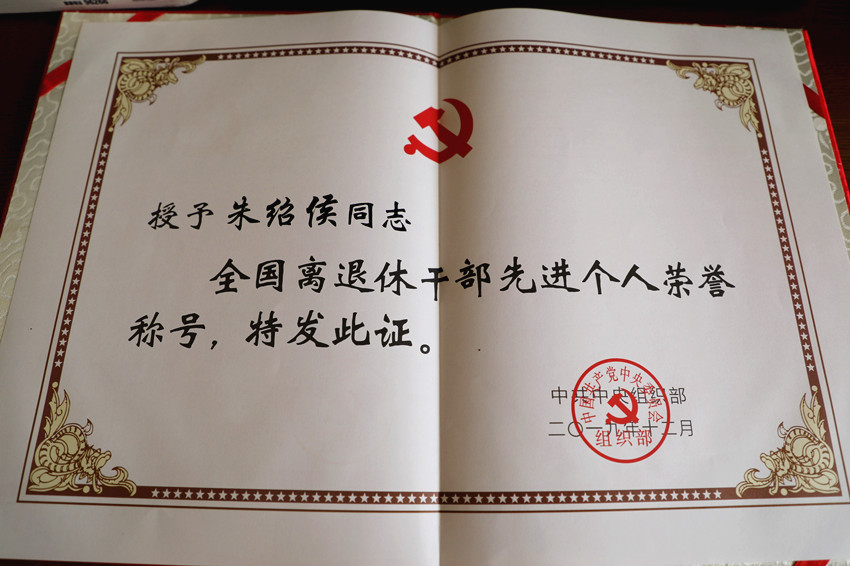 授予朱绍侯同志
全国离退休干部先进个人荣誉
称号，特发此证。
中共中央组织部
二〇一九年十二月
中国共产党中央委员会
组织部